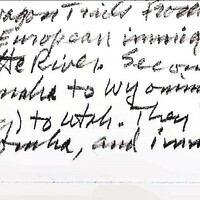 Wagon Trails
European immig
tte River. Secon
maha to Wyomin
to Utah. They
Omaha, and imm